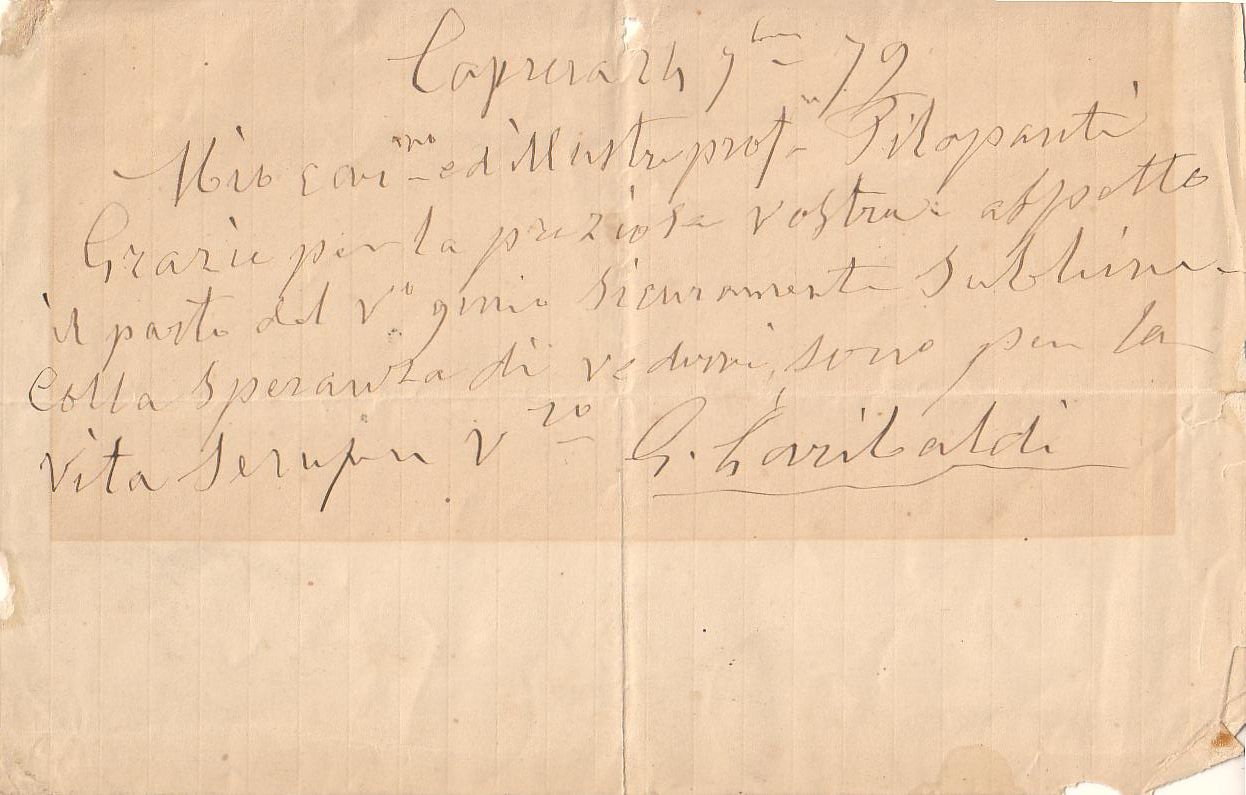 Caprera 24 7bre 79
Mio carimo ed illustre profre Filopanti
Grazie per la preziosa vostra: aspetto
il parto del Vo genio sicuramente sublime
Colla speranza di vedervi, sono per la
vita sempre Vro G. Garibaldi